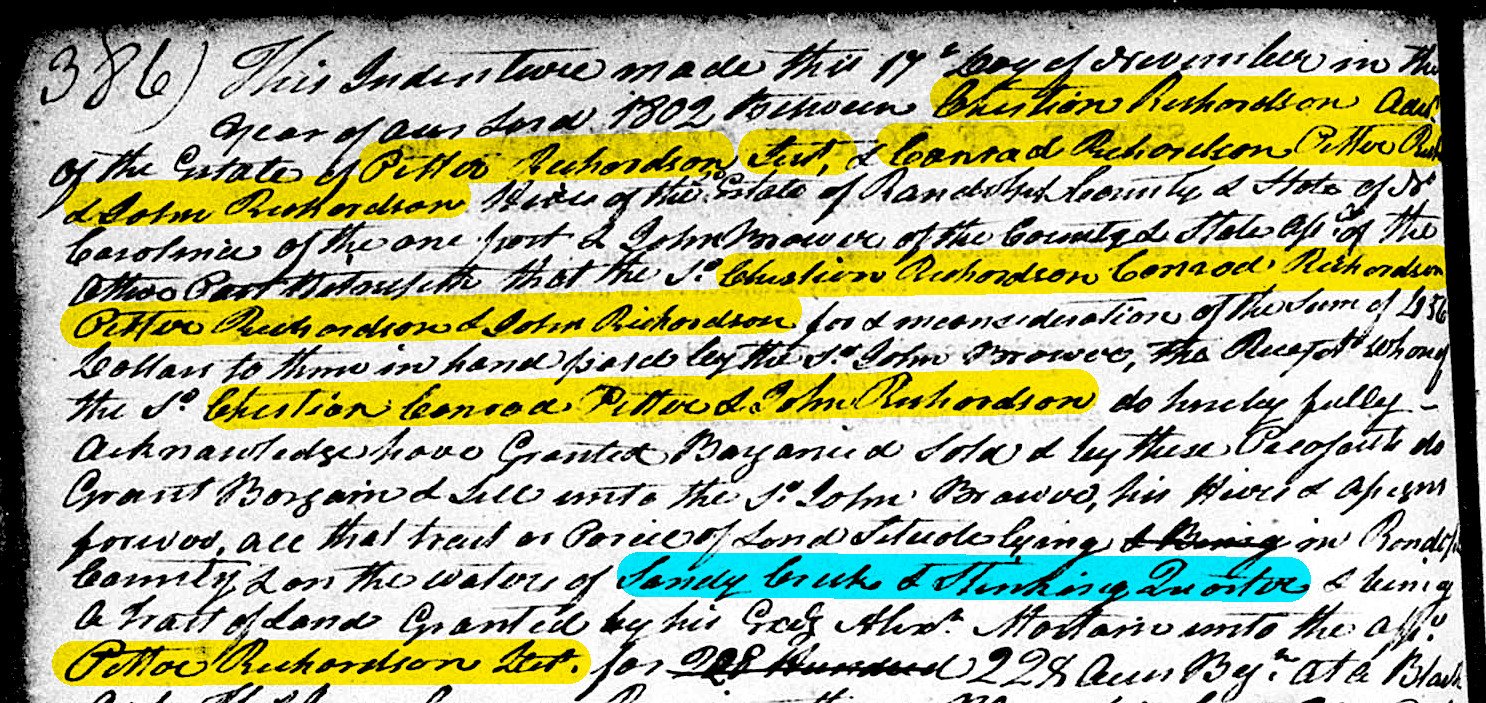 386) This Indenture made this 17th Day of November in the
Year of our Lord 1802 Between Christion Richardson Adm
of the Estate of Pitter Richardson, Dest, & Conrad Richardson Pitter Rich
& John Richardson Hires of the Estate of Randolph County & State of No
Carolina of the one part & John Brower of the County & State afsd of the
Other Part Witnesseth that the sd Christion Richardson Conrad Richardson
Pitter Richardson & John Richardson for & in consideration of the Sum of
Dollars to them in hand paid by the sd John Brower, the Receipt whereof
the sd Christian Conrad Pitter & John Richardson do hereby fully -
Acknowledge have Granted Barganed Sold & by these Presents do
Grant Bargain & Sell unto the sd John Brower, his Hires & Assigns
forever, all that tract or Parcel of Land Situate lying & Being in Randolph
County & on the waters of Sandy Creek & Stinking Quarter & being
A tract of Land Granted by his Alexr Martain unto the afsd
Pitter Richardson Dest. for Hundred 228 Acres Begn at a Black